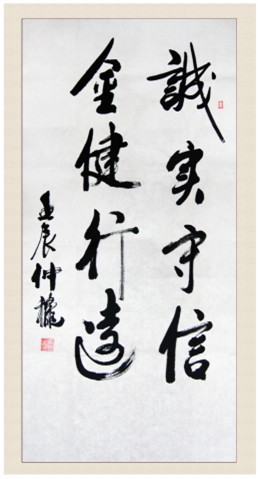 誠实守信
金健行遠
壬辰仲龍